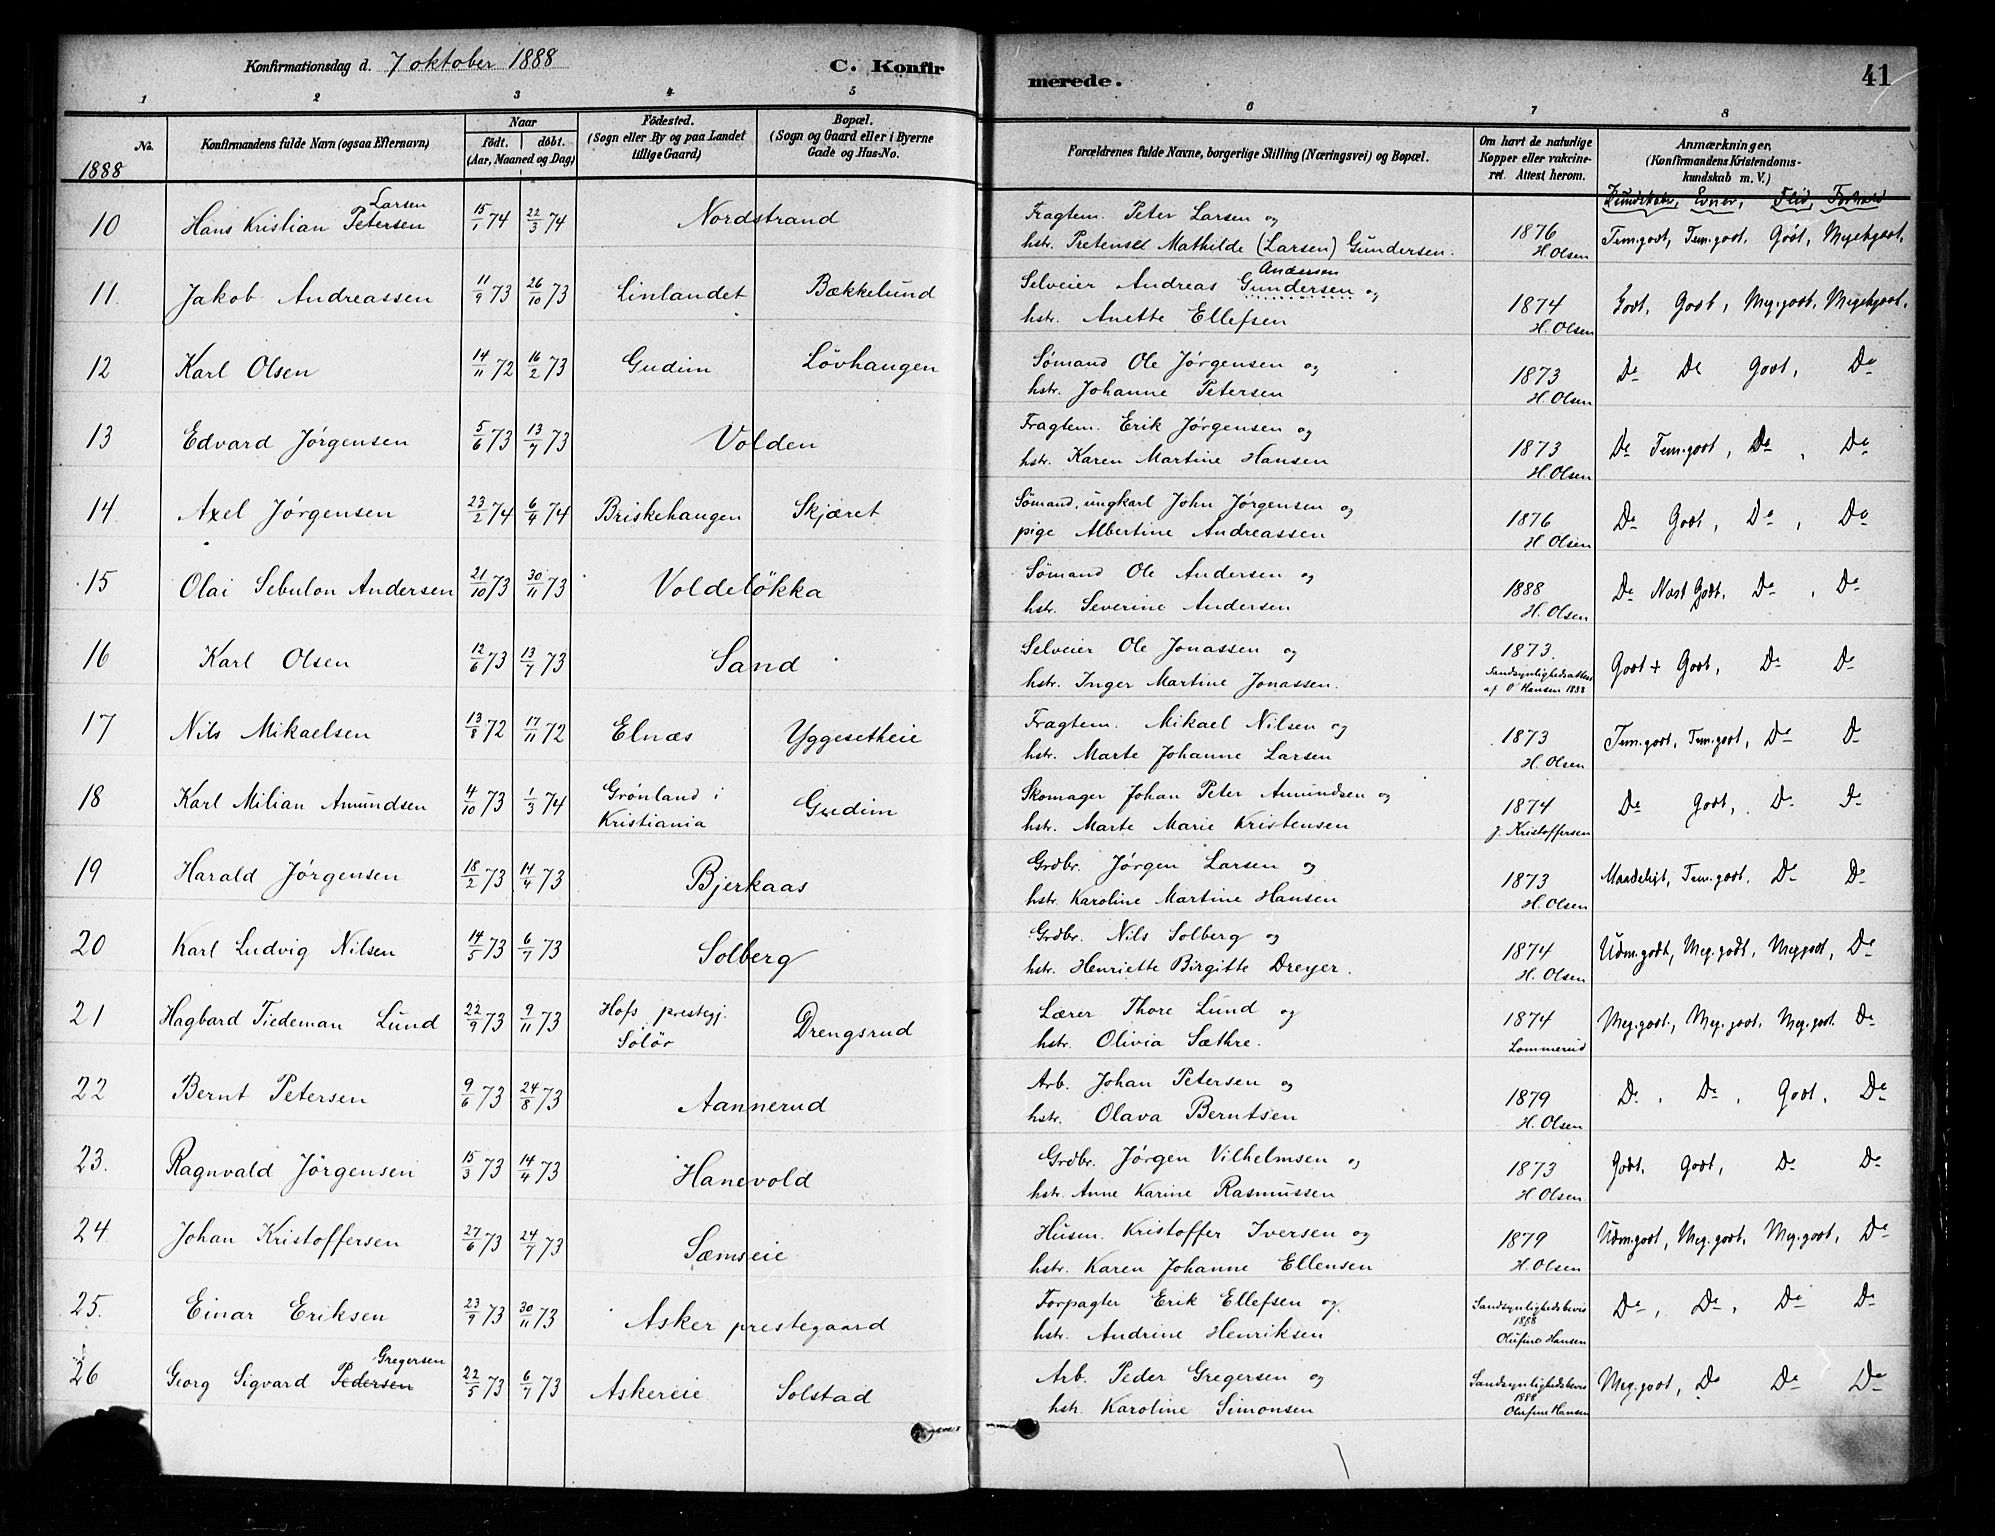 Konfirmationsdag d. 7 oktober 1888
C. Konfirmerede.
41
1 2 3 4 5 6 7 8
No.
Konfirmandens fulde Navn (ogsaa Efternavn)
Naar
födt. döbt.
(Aar, Maaned og Dag)
Födested.
(Sogn eller By og paa Landet
tillige Gaard)
Bopæl.
(Sogn og Gaard eller i Byerne
Gade og Hus-No.
Forældrenes fulde Navne, borgerlige Stilling (Næringsvei) og Bopæl.
Om havt de naturlige
Kopper eller vakcine-
ret. Attest herom.
Anmærkninger.
(Konfirmandens Kristendoms-
kundskab m. V.)
1888
Kundskaber, Evner, Flid, Forhold
Larsen
10 Hans Kristian Petersen 15/1 74 22/3 74 Nordstrand Fragtem. Peter Larsen og
hstr. Mathilde (Larsen) Gundersen. 1876 H. Olsen Tem.godt, Tem.godt. Godt, Megetgodt.
Andersen
11. Jakob Andreassen 11/9 73 26/10 73 Linlandet Bækkelund Selveier Andreas Gundersen og
hstr. Anette Ellefsen 1874 H. Olsen Godt, Godt, Meg.godt, Megetgodt.
12 Karl Olsen 14/11 72 16/2 73 Gudim Lövhaugen Sømand Ole Jørgensen og
hstr. Johanne Petersen 1873 H. Olsen Do Do Godt, Do
13 Edvard Jørgensen 5/6 73 13/7 73 Volden Fragtem. Erik Jørgensen og
hstr. Karen Martine Hansen 1873 H. Olsen Do Tem.godt, Do, Do
14 Axel Jørgensen 23/2 74 6/4 74 Briskehaugen Skjæret Sømand, ungkarl John Jørgensen og
pige Albertine Andreassen 1876 H. Olsen Do Godt, Do, Do
15 Olai Sebulon Andersen 21/10 73 30/11 73 Voldeløkka Sømand Ole Andersen og
hstr. Severine Andersen 1888 H. Olsen Do Næst Godt, Do, Do
16 Karl Olsen 12/6 73 13/7 73 Sand Selveier Ole Jonassen og
hstr. Inger Martine Jonassen. 1873. Sandsynlighedsattest
af O Hansen 1888 Godt + Godt, Do Do
17 Nils Mikaelsen 13/8 72 17/11 72 Elnæs Yggesetheie Fragtem. Mikael Nilsen og
hstr. Marte Johanne Larsen 1873 H. Olsen Tem.godt, Tem.godt, Do Do
18 Karl Milian Amundsen 4/10 73 1/3 74 Grønland i
Kristiania Gudim Skomager Johan Peter Amundsen og
hstr. Marte Marie Kristensen 1874 J. Kristoffersen Do Godt, Do Do
19 Harald Jørgensen 18/2 73 14/4 73 Bjerkaas Grdbr. Jørgen Larsen og
hstr. Karoline Martine Hansen 1873 H. Olsen Maadeligt, Tem.godt. Do Do
20 Karl Ludvig Nilsen 14/5 73 6/7 73 Solberg Grdbr. Nils Solberg og
hstr. Henriette Birgitte Dreyer. 1874 H. Olsen Udm.godt, Meg.godt, Meg.godt, Do
21 Hagbard Tiedeman Lund 22/9 73 9/11 73 Hofs prestegj.
Solör Drengsrud Lærer Thore Lund og
hstr. Olivia Sæthre. 1874 Lommerud Meg.godt, Meg.godt. Meg.godt. Do
22 Bernt Petersen 9/6 73 24/8 73 Aannerud Arb. Johan Petersen og
hstr. Olava Berntsen 1879 H. Olsen Do, Do, Godt, Do
23. Ragnvald Jörgensen 15/3 73 14/4 73 Hanevold Grdbr. Jørgen Vilhelmsen og
hstr. Anne Karine Rasmussen 1873 H Olsen Godt, Godt, Do Do
24 Johan Kristoffersen 27/6 73 24/7 73 Sæmseie Husm. Kristoffer Iversen og
hstr. Karen Johanne Ellensen 1879 H. Olsen Udm.godt, Meg.godt, Meg.godt, Do
25. Einar Eriksen 23/9 73 30/11 73 Asker prestegaard Forpagter Erik Ellefsen og
hstr. Andrine Henriksen Sandsynlighedsbevis
1888
Olufine Hansen Do, Do, Do Do
Gregersen
26 Georg Sigvard Pedersen 22/5 73 6/7 73 Askereie Solstad Arb. Peder Gregersen og
hstr. Karoline Simonsen Sandsynlighedsbevis
1888
Olufine Hansen Meg.godt, Do Do Do